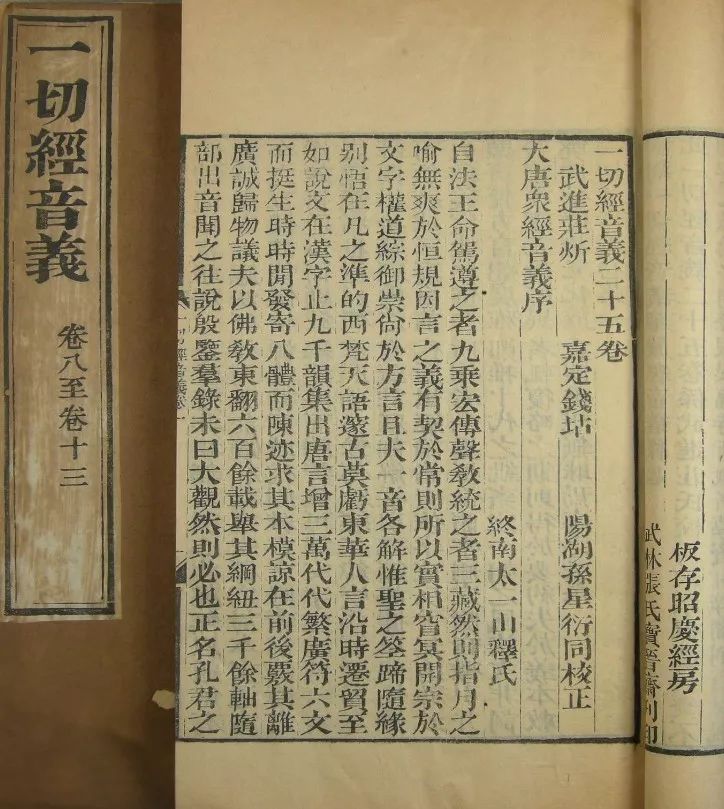 板存昭慶經房
武林張氏寶晉齋刊印
一切經音義二十五卷
武進莊炘 嘉定錢坫 陽湖孫星衍同校正
大唐衆經音義序
終南太一山釋氏
自法王命駕遵之者九乘宏傳聲敎統之者三藏然則指月之
喻無爽於恒規因言之義有契於常則所以實相窅冥開宗於
文字權道綜御崇尙於方言且夫一音各解惟聖之筌蹄隨緣
别悟在凡之準的西梵天語邃古莫虧東華人言沿時遷貿至
如說文在漢字止九千韻集出唐言增三萬代代繁廣符六文
而挺生時時閒發寄八體而陳迹求其本模諒在前後覈其離
廣誠歸物議夫以佛敎東翻六百餘載舉其綱紐三千餘軸隨
部出音聞之往說殷鑒羣錄未曰大觀然則必也正名孔君之
一切經音義
卷八至卷十三